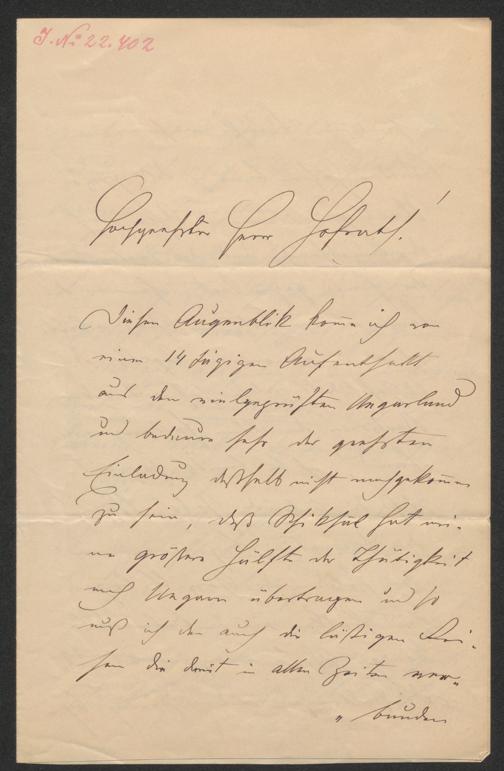 J. No 22.402
Hochgeehrter Herr Hofrath!
Diesen Augenblik kome ich von
einem 14 tägigen Aufenthalt
aus dem vielgeprüften Ungarland
und bedaure sehr der geehrten
Einladung deßhalb nicht nachgekomen
zu sein, daß Schiksal hat mei-
ne größere Hälfte der Thätigkeit
nach Ungarn übertragen und so
muß ich den auch die lästigen Rei-
sen die damit in allen Zeiten ver-
" bunden